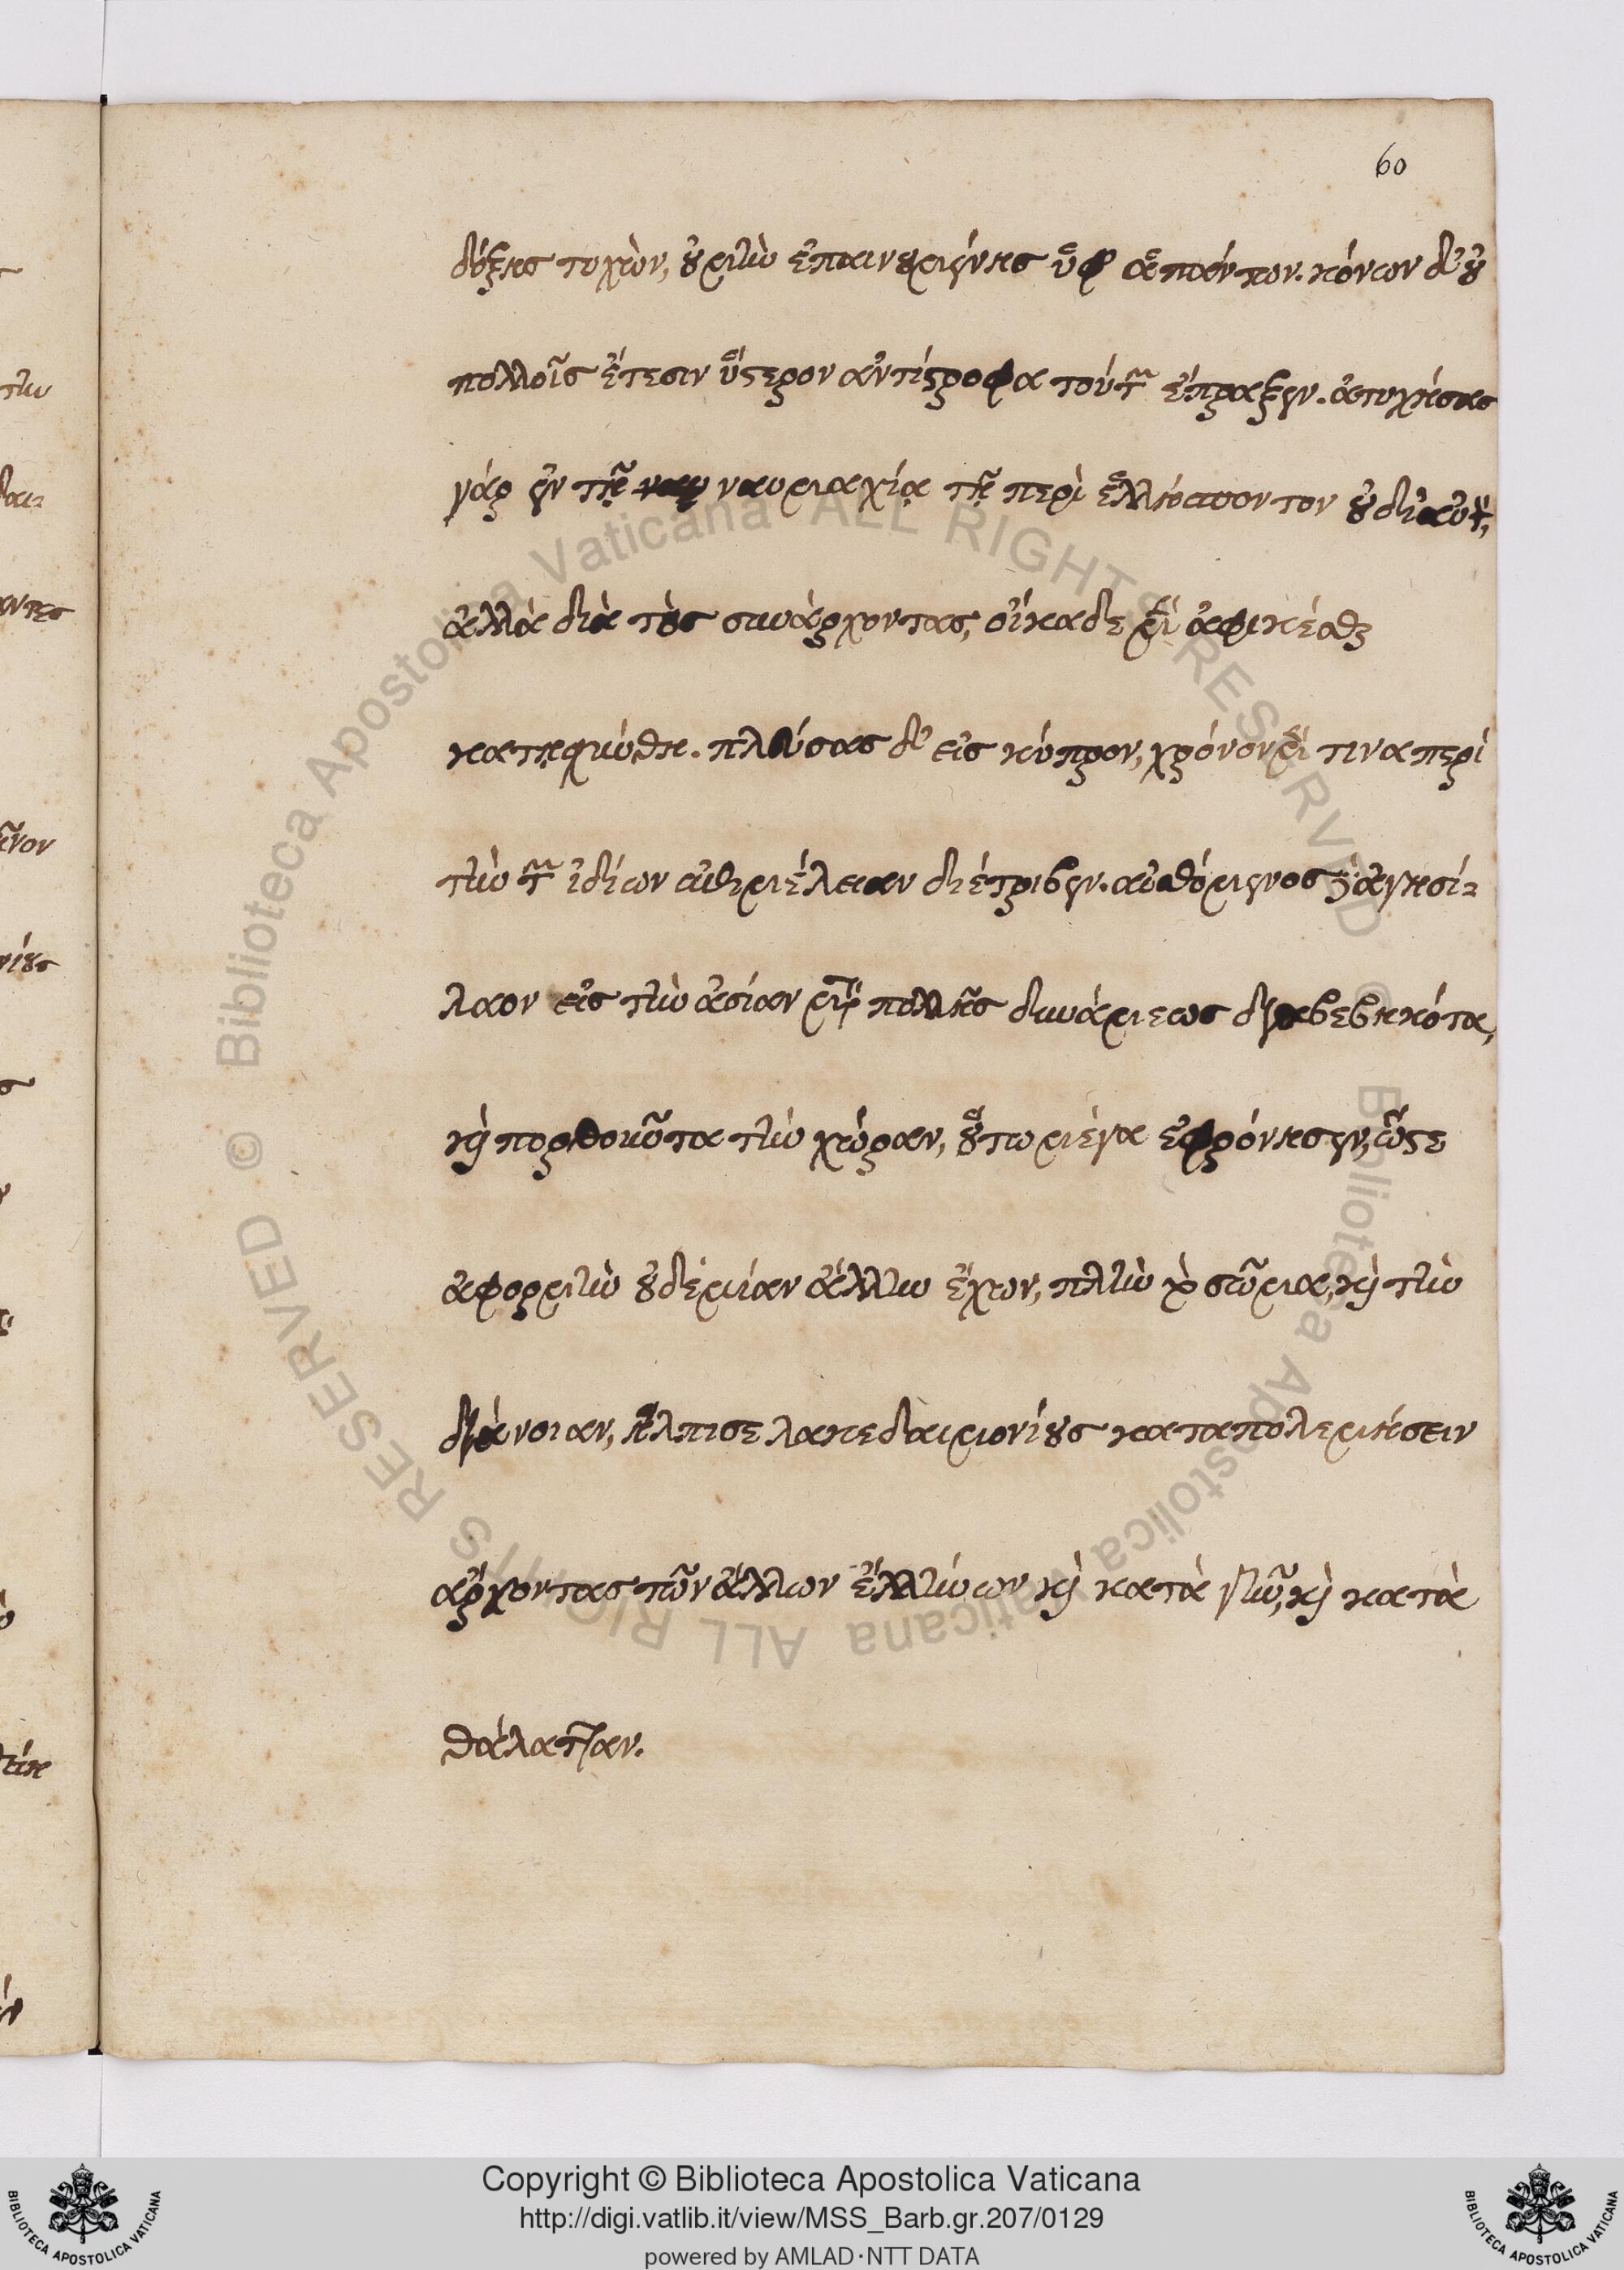 60
δόξης τυχὼν, οὐ μὴν ἐπαινουμένης ὑφ ἁπάντων. κόνων δ' οὐ
πολλοῖς ἔτεσιν ὕστερον ἀντίστροφα τούτων ἔπραξεν. ἀτυχήσας
γάρ ἐν τῇ ναυμαχίᾳ τῇ περὶ ἑλλήσποντον οὐ δι' αὑτὸν,
ἀλλὰ διὰ τοὺς συνάρχοντας, οἴκαδε μὲν ἀφικέσθαι
κατῃσχύνθη. πλεύσας δ' εἰς κύπρον, χρόνον μέν τινα περὶ
τὴν τῶν ἰδίων ἐπιμέλειαν διέτριβεν. αἰσθόμενος δὲ ἀγησί-
λαον εἰς τὴν ἀσίαν μετὰ πολλῆς δυνάμεως διαβεβηκότα,
καὶ πορθοῦντα τὴν χώραν, οὕτω μέγα ἐφρόνησεν, ὥστε
ἀφορμὴν οὐδεμίαν ἄλλην ἔχων, πλὴν τὸ σῶμα, καὶ τὴν
διάνοιαν, ἤλπισε λακεδαιμονίους καταπολεμήσειν
ἄρχοντας τῶν ἄλλων ἑλλήνων καὶ κατὰ γῆν, καὶ κατὰ
θάλατταν.
Copyright © Biblioteca Apostolica Vaticana
http://digi.vatlib.it/view/MSS_Barb.gr.207/0129
powered by AMLAD·NTT DATA
BIBLIOTECA APOSTOLICA VATICANA
BIBLIOTECA APOSTOLICA VATICANA
© Biblioteca Apostolica Vaticana ALL RIGHTS RESERVED © Biblioteca Apostolica Vaticana ALL RIGHTS RESERVED